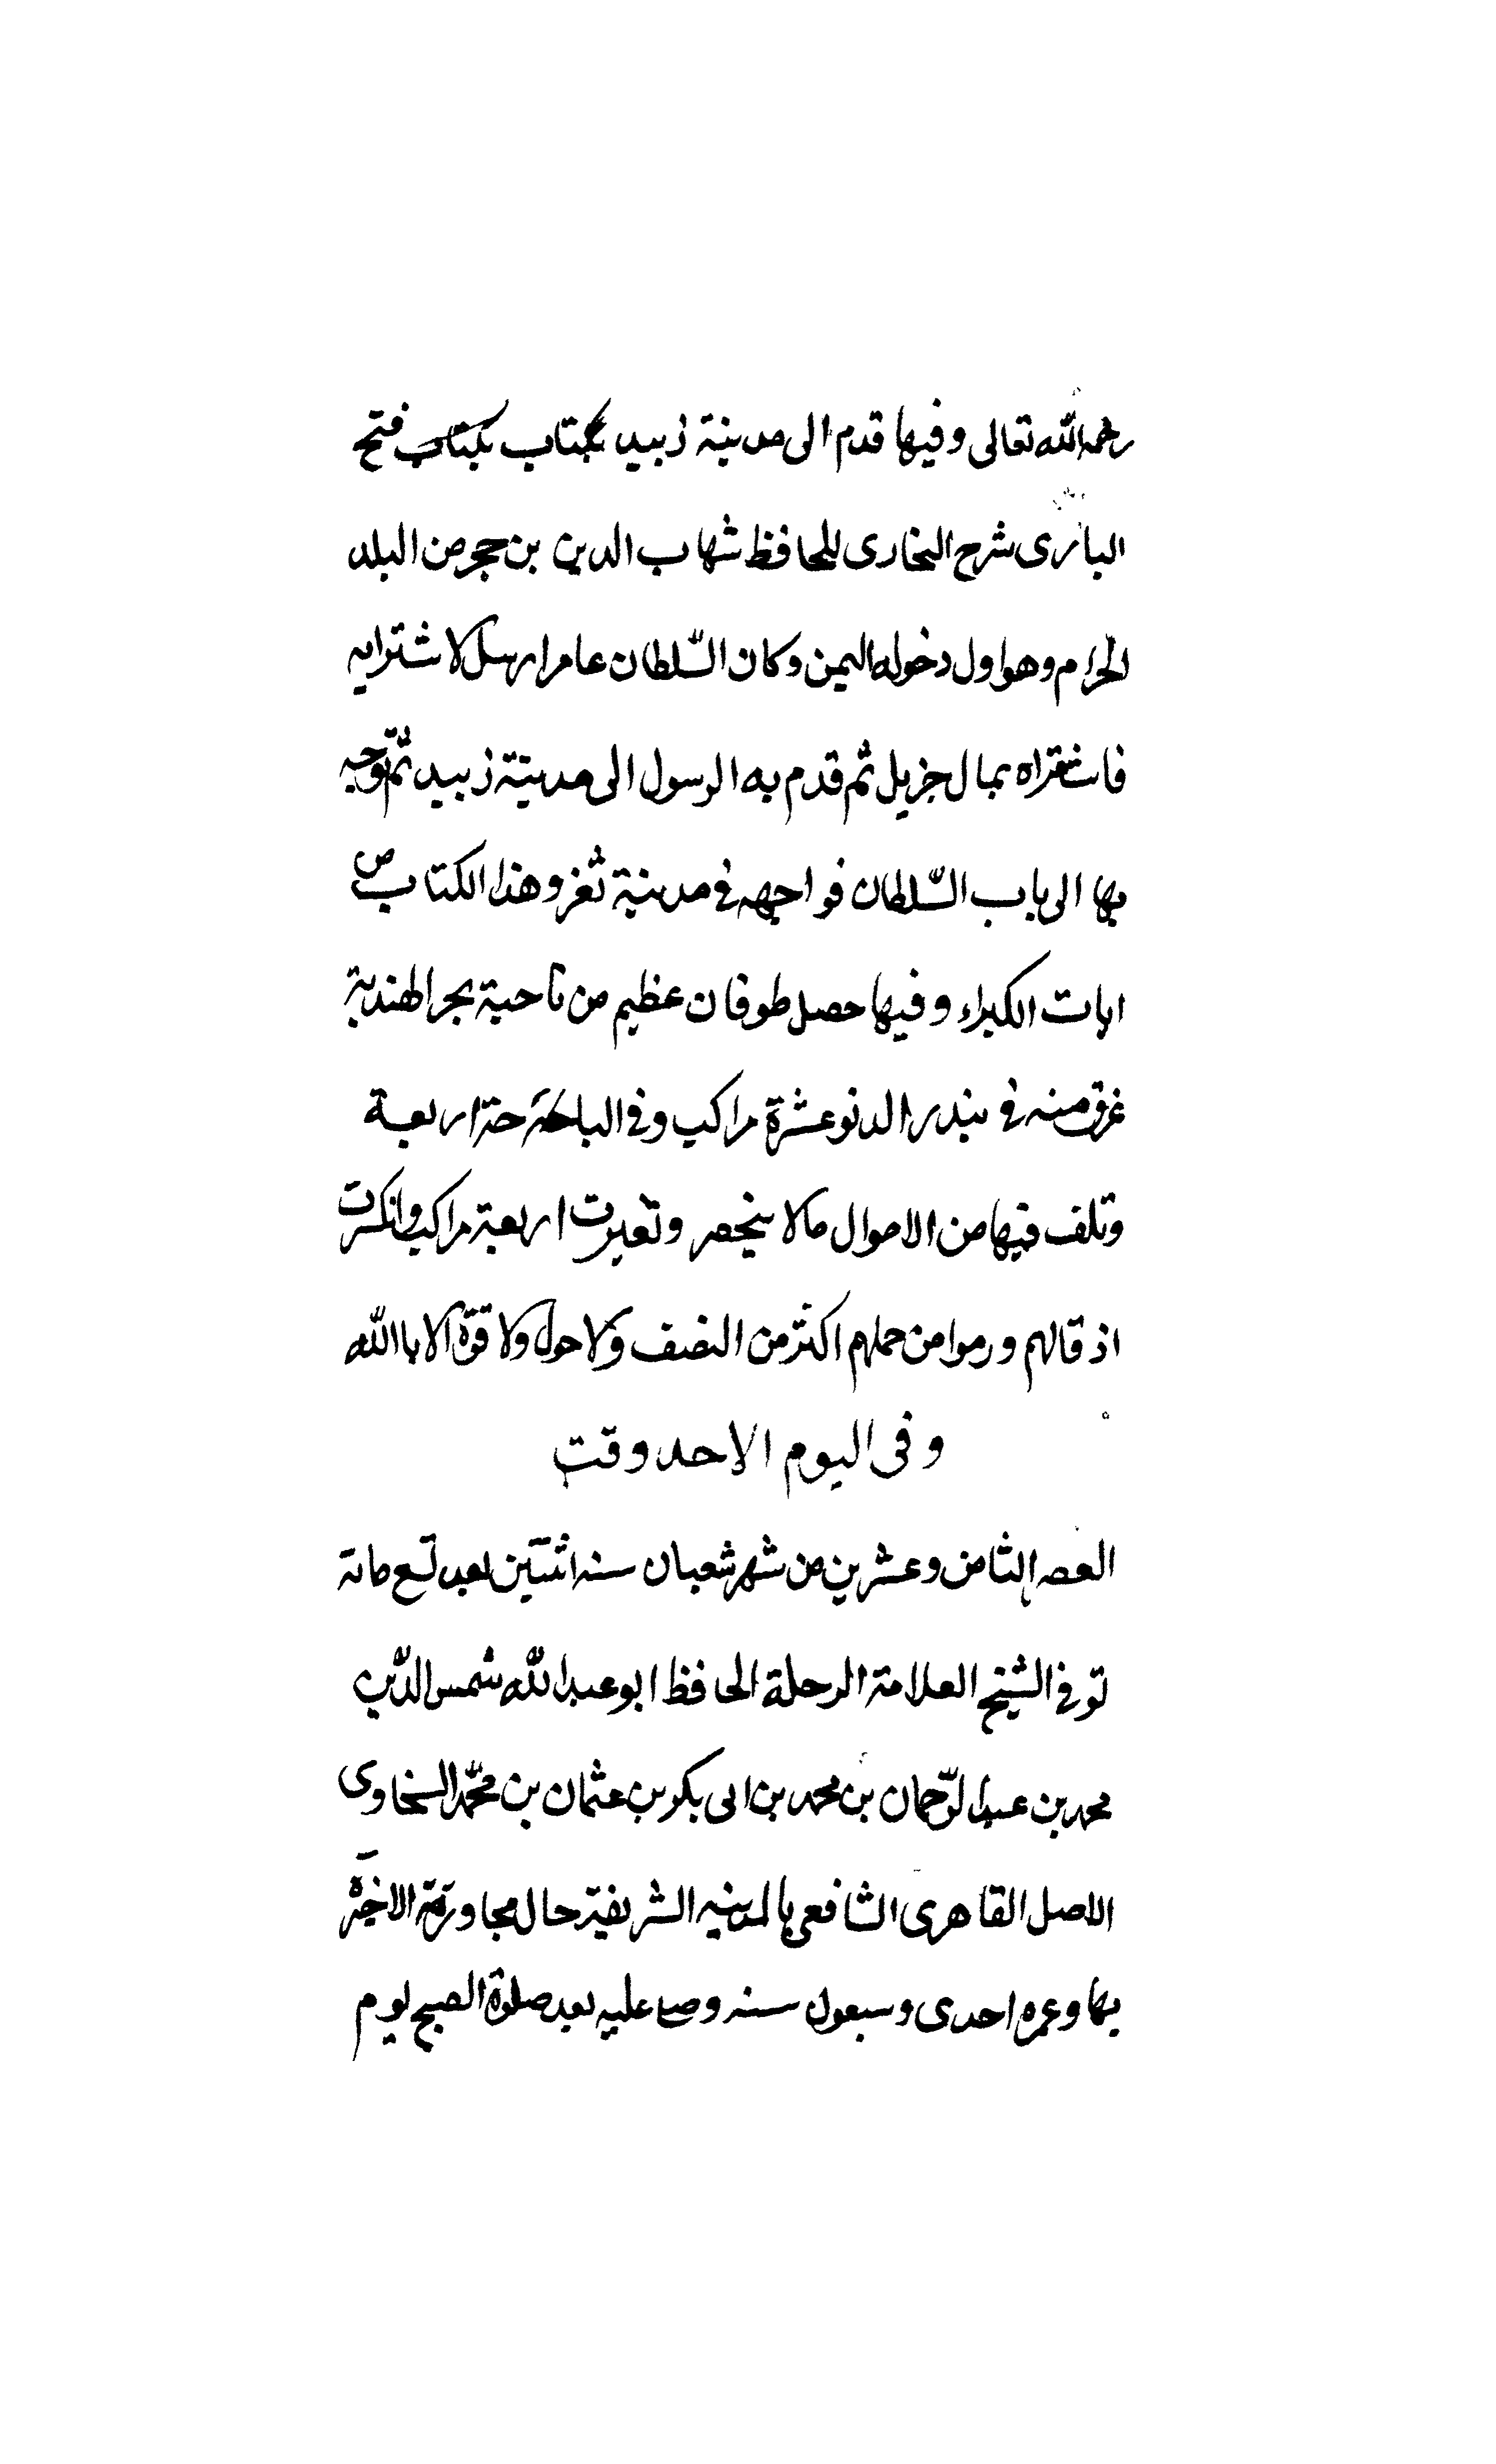 رحمه الله تعالى وفيها قدم الى مدينة زبيد بكتاب بكتاب فتح
البارى شرح البخارى للحافظ شهاب الدين بن حجر من البلد
الحرام وهو اول دخوله اليمن وكان السّلطان عامر ارسل لاشترايه
فاشتراه بمال جزيل ثم قدم به الرسول الى مدينة زبيد ثمّ توجه
بها الى باب السّلطان فواجهه في مدينة تعز وهذا الكتاب من
ايات الكبراء وفيها حصل طوفان عظيم من ناحية بحر الهندية
غرق منه في بندر الدنو عشرة مراكب وفي الباحة حتة اربعة
وتلف فيها من الاموال مالا ينحصر وتغيرت اربعة مراكب وانكسرت
اذ قالهم ورموا من حملهم اكثر من النصف ولا حول ولا قوّة الا باالله
وفى اليوم الاحد وقت
العصر الثامن وعشرين من شهر شعبان سنه اثنتين بعد تسع مائة
توفي الشيخ العلامة الرحلة الحافظ ابو عبد الله شمس الدّين
محمد بن عبد الرّحمان بن محمد بن ابى بكر بن عثمان بن محمّد السخاوى
الاصل القاهرى الشافعى بالمدينه الشريفة حال مجاورته الاخيرة
بها وعمره احدى وسبعون سنه وصلى عليه بعد صلوة الصبح يوم